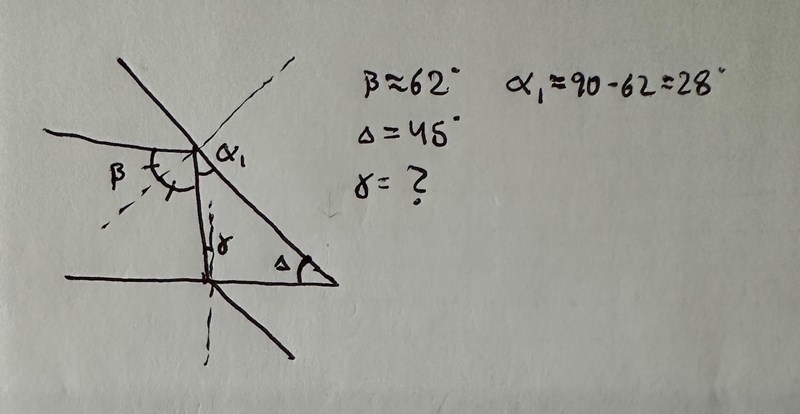 β≈62°
α₁≈90-62=28°
Δ=45°
γ=?
α₁
β
γ
Δ